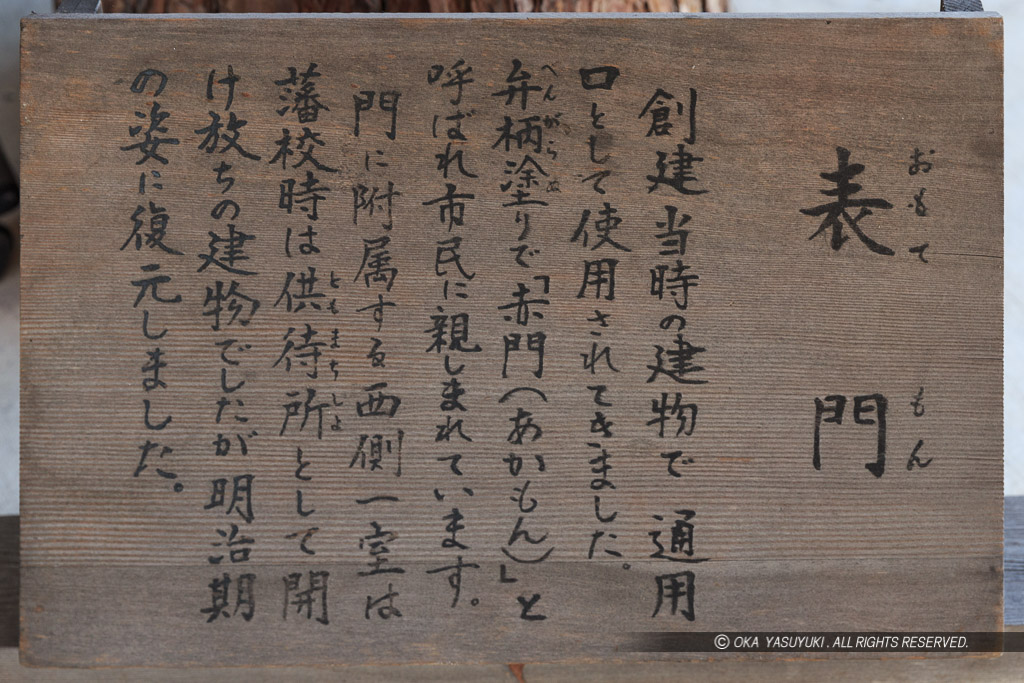 表門
おもてもん
創建当時の建物で通用
口として使用されてきました。
弁柄塗りで「赤門(あかもん)」と
べんがらぬ
呼ばれ市民に親しまれています。
門に附属する西側一室は
藩校時は供待所として開
ともまちしよ
け放ちの建物でしたが明治期
の姿に復元しました。
© OKA YASUYUKI. ALL RIGHTS RESERVED.